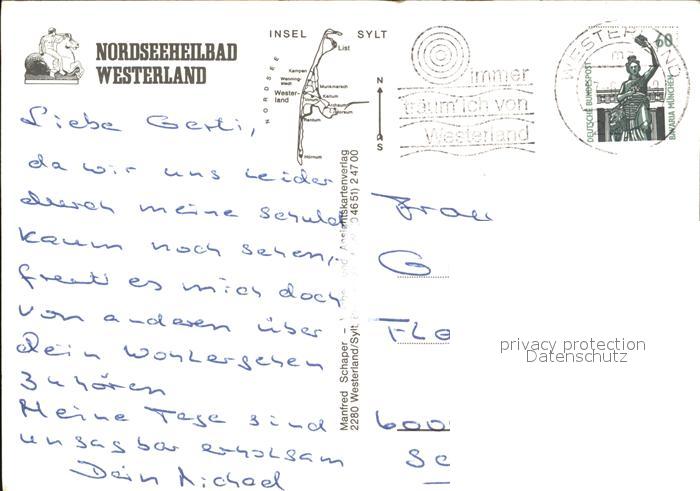 NORDSEEHEILBAD
WESTERLAND
INSEL SYLT
List
Kampen
Wenning-
stedt
Munkmarsch
Wester-
land
Keitum
Tinnum
Archsum
Morsum
Rantum
Hörnum
NORDSEE
N
S
immer
träum' ich von
Westerland
WESTERLAND
60
DEUTSCHE BUNDESPOST
BAVARIA MÜNCHEN
Liebe Gerti,
da wir uns leider
durch meine Schuld
kaum noch sehen,
freut es mich doch
von anderen über
Dein Wohlergehen
zu hören
Meine Tage sind
unsagbar erholsam
Dein Michael
Manfred Schaper – und Ansichtskartenverlag
2280 Westerland/Sylt 04651) 24700
Frau
G
Fle
600
Sc
privacy protection
Datenschutz